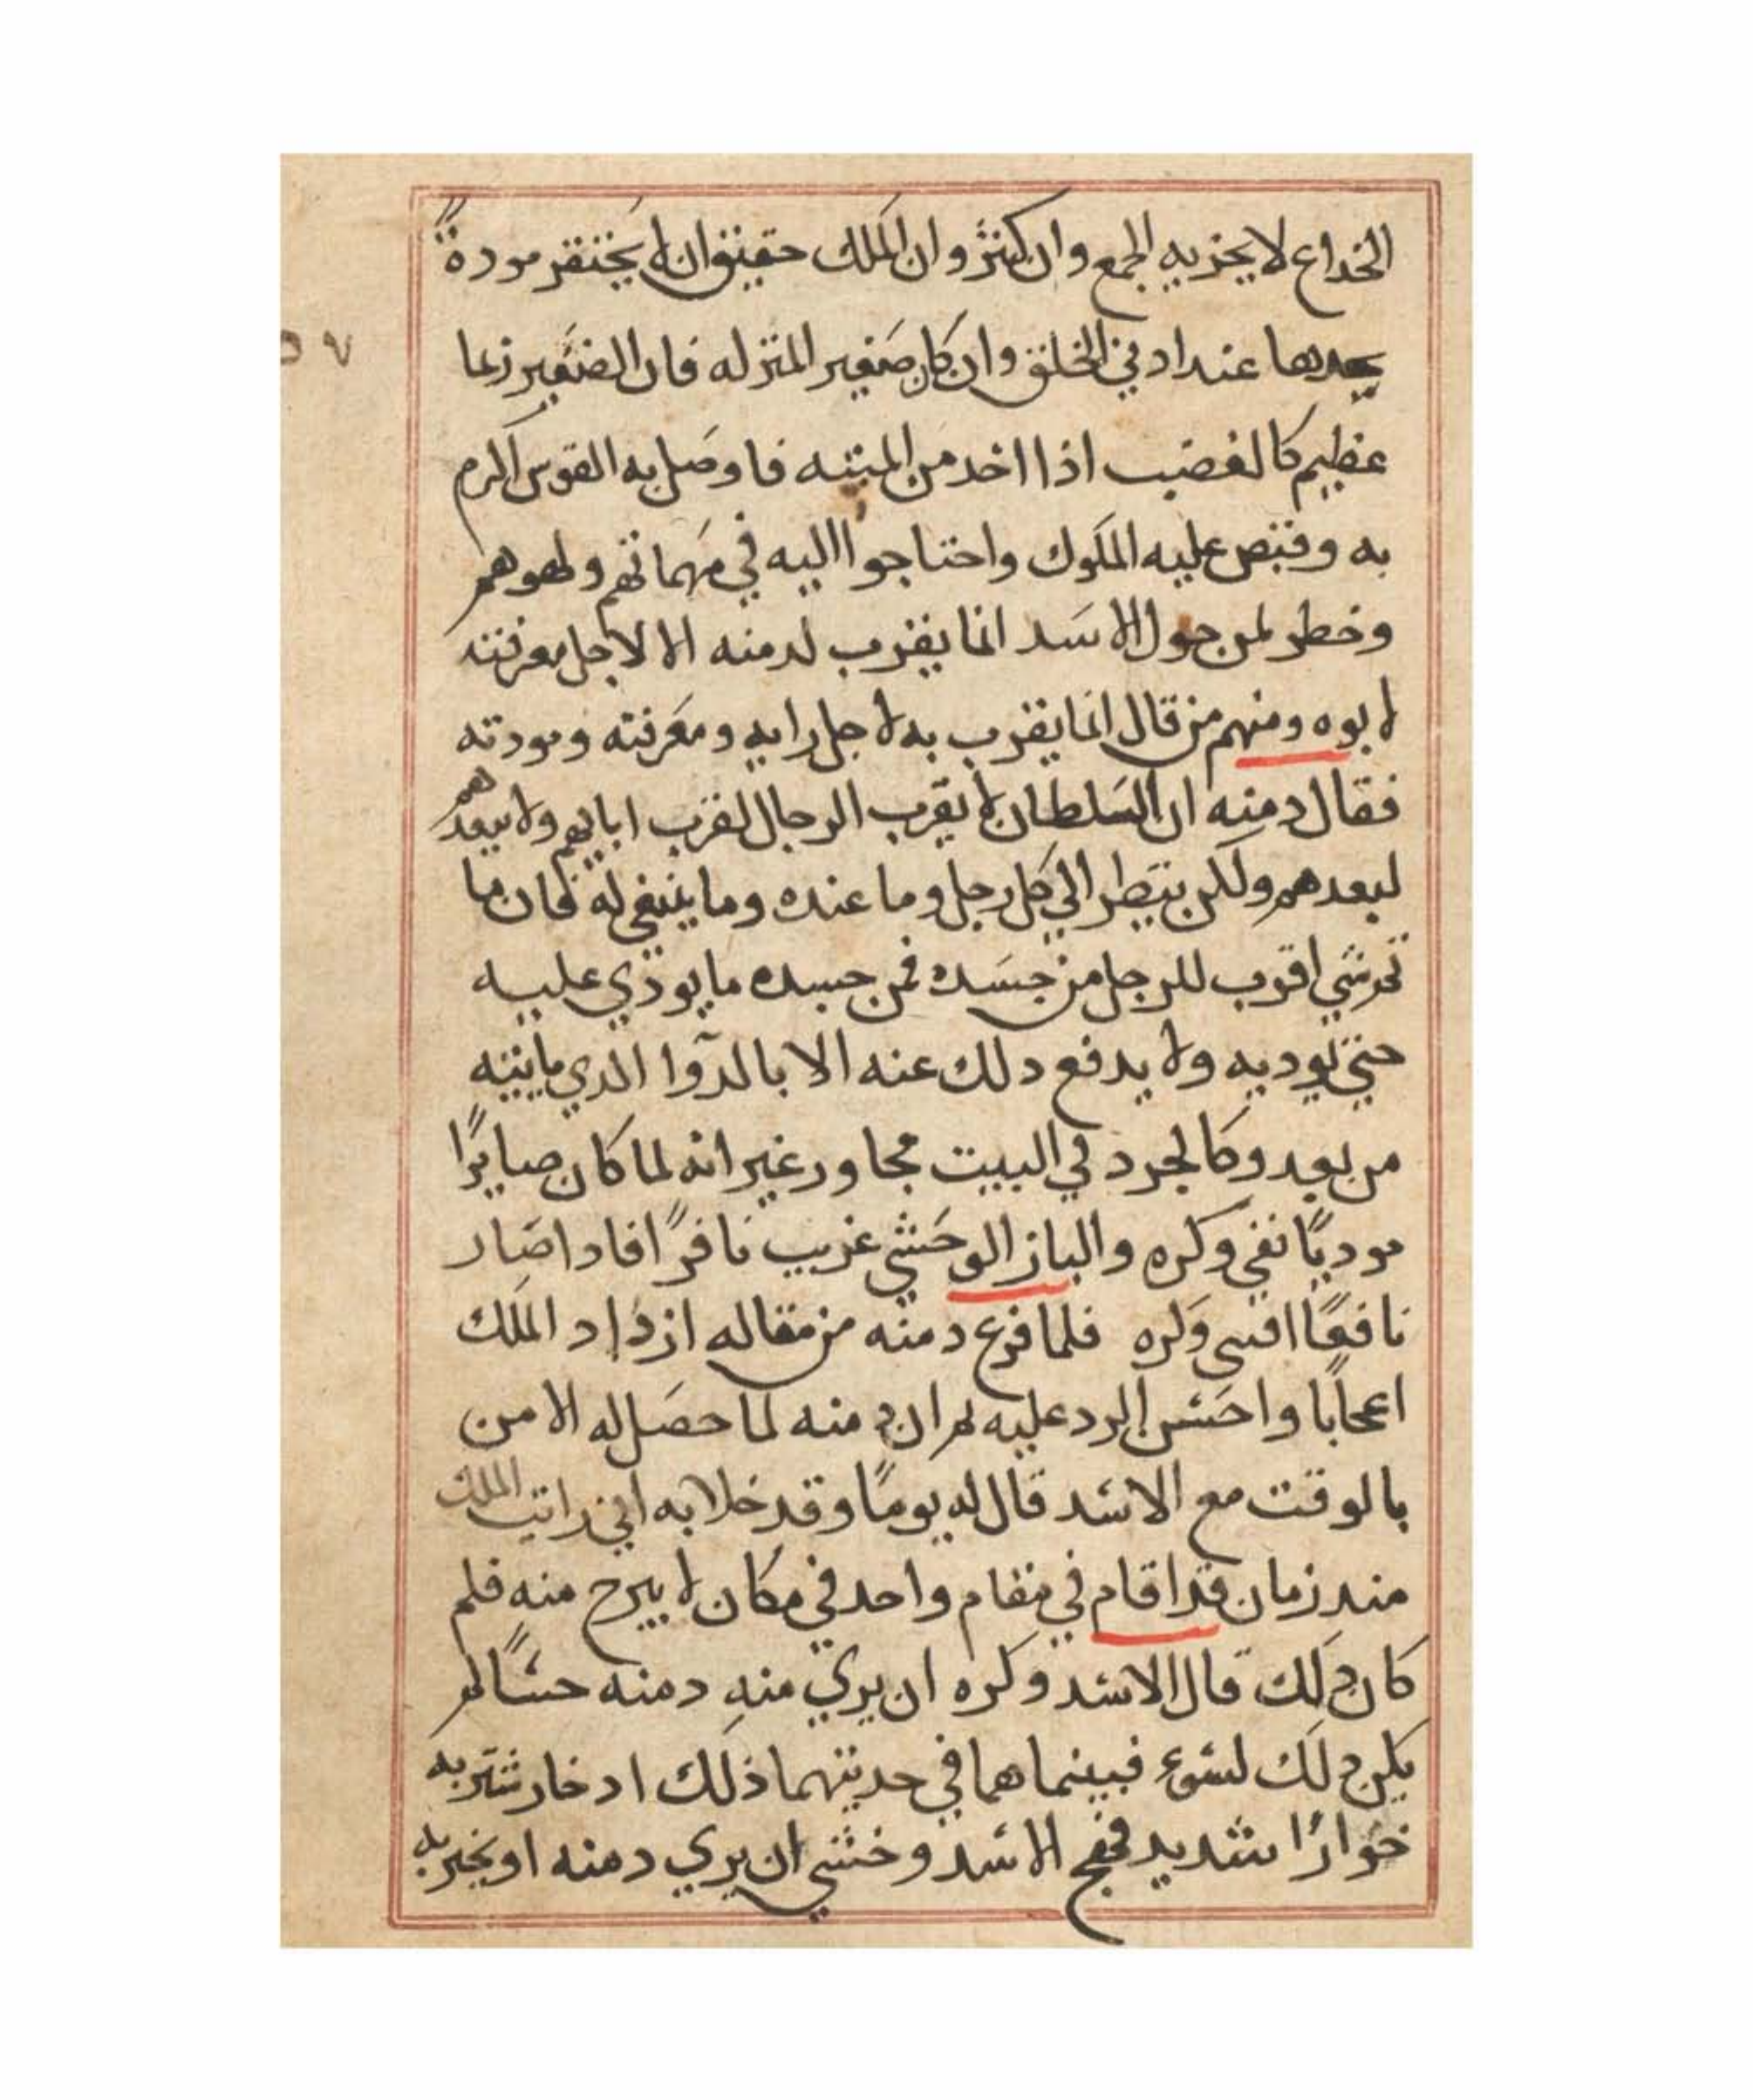 الخداع لا يجزيه الجمع وان كثر وان الملك حقيق ان لا يحتقر مودة
يجدها عند ادني الخلق وان كان صغير المنزله فان الصغير زعا
عظيم كالغضب اذا اخد من الميته فاوصل به القوس اكرم
به وقبض عليه الملوك واحتاجوا اليه في مهماتهم ولهوهم
وخطر لمن حول الاسد انما يقرب لدمنه الا لاجل معرفته
لابوه ومنهم من قال انما يقرب به لاجل رايه ومعرفته ومودته
فقال دمنه ان السلطان لا يقرب الرجال لقرب ابايهم ولا يبعدهم
لبعدهم ولكن ينظر الي كل رجل وما عنده وما ينبغي له فان ما
تم شي اقرب للرجل من جسده فمن جسده ما يودي عليه
حتي يوديه ولا يدفع دلك عنه الا بالدوا الدي ياتيه
من بعد وكالجرد في البيت مجاور غير انه لما كان صايرًا
موديًا نفي وكره والباز الوحشي غريب نافرًا فادا صار
نافعًا اقسي وكره فلما فرغ دمنه من مقاله ازداد الملك
اعجابًا واحسن الرد عليه ثم ان دمنه لما حصل له الامن
بالوقت مع الاسد قال له يومًا وقد خلا به اني رايت الملك
مند زمان قد اقام في مقام واحد في مكان لا يبرح منه فلم
كان دلك قال الاسد وكره ان يري منه دمنه حسًا لم
يكن دلك لسوء فبينما هما في حديثهما ذلك اد خار شتربه
خوارًا شديد فهج الاسد وخشي ان يري دمنه او يخبر به
٥٧